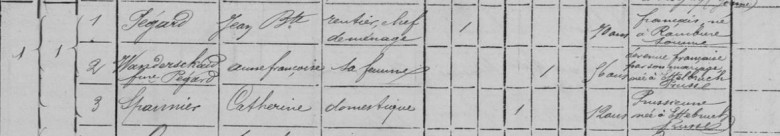 1 1 1 Pégard Jean Bte rentier, chef de ménage 1 70 ans français, né à Rambure Somme
2 Wanderscheid fme Pégard anne françoise sa femme 1 ans devenue française par son mariage née à Prusse
3 Spannier Catherine domestique 1 ans Prussienne née à Prusse